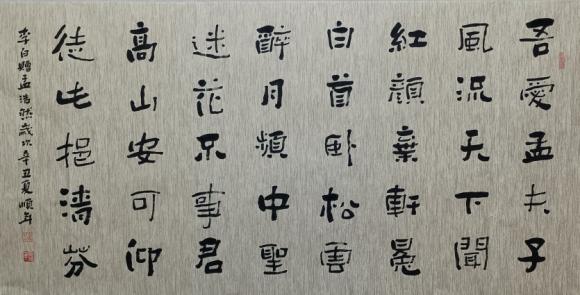 吾愛孟夫子
風流天下聞
紅顏棄軒冕
白首臥松雲
醉月頻中聖
迷花不事君
高山安可仰
徒此挹清芬
李白贈孟浩然歲次辛丑夏順年